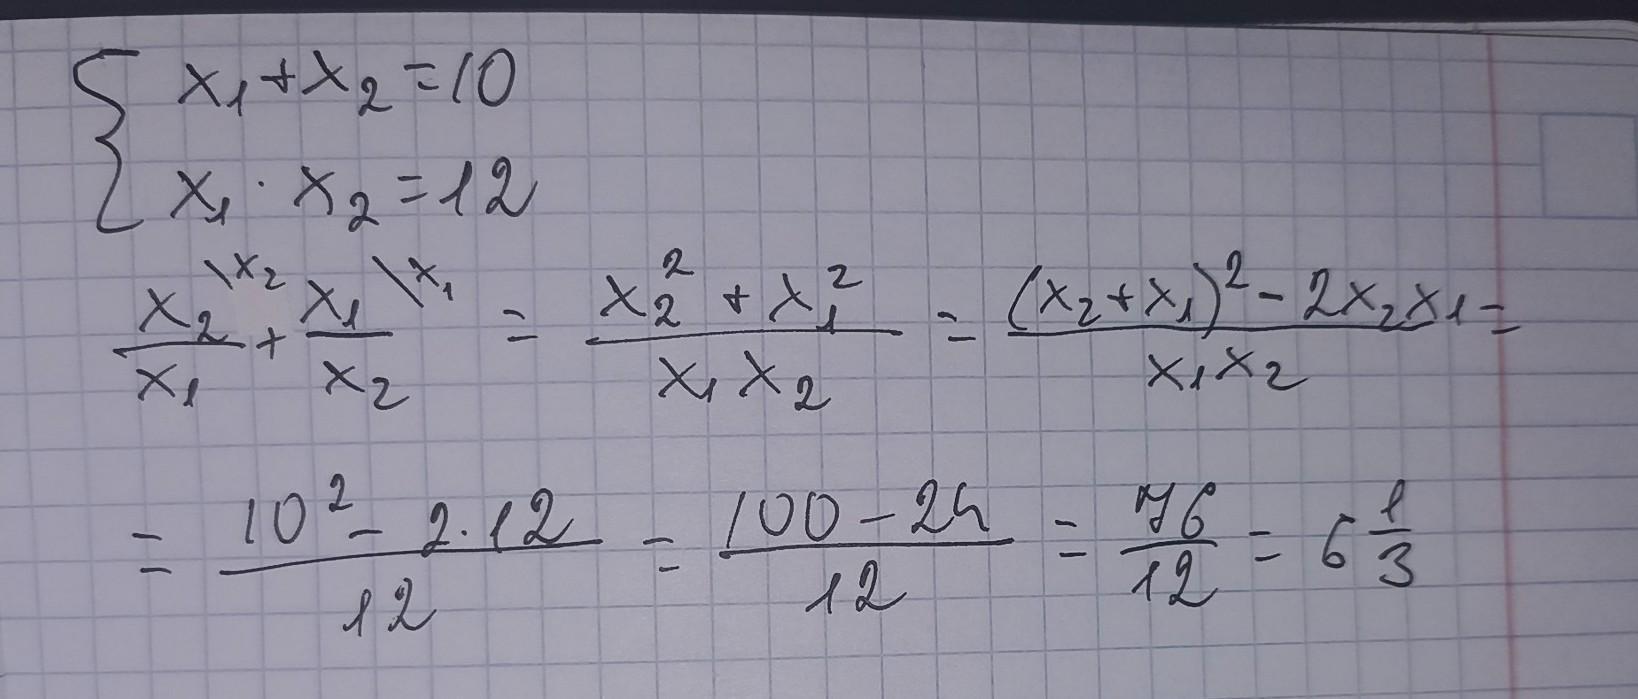 { x₁ + x₂ = 10
x₁ · x₂ = 12
x₂/x₁ \x₂ + x₁/x₂ \x₁ = (x₂² + x₁²)/(x₁x₂) = ((x₂ + x₁)² - 2x₂x₁)/(x₁x₂) =
= (10² - 2·12)/12 = (100 - 24)/12 = 76/12 = 6 1/3